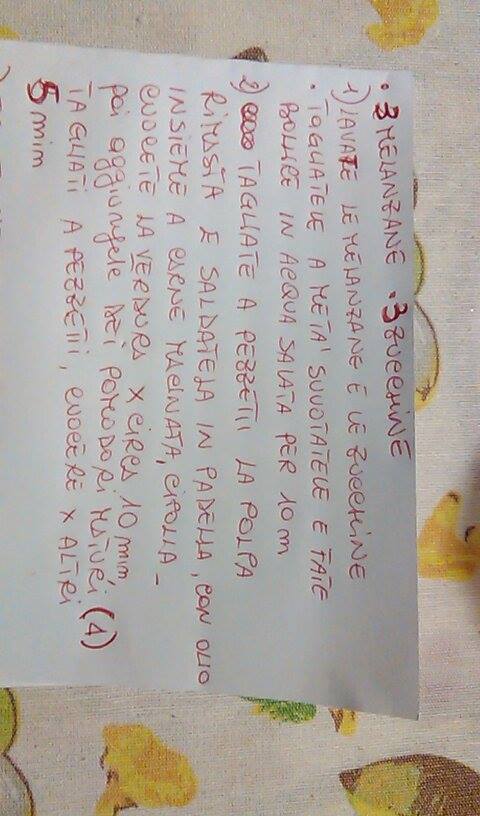 • 3 MELANZANE • 3 ZUCCHINE
1) LAVATE LE MELANZANE E LE ZUCCHINE
• TAGLIATELE A META' SVUOTATELE E FATE
BOLLIRE IN ACQUA SALATA PER 10 m
2) TAGLIATE A PEZZETTI LA POLPA
RIMASTA E SALDATELA IN PADELLA, CON OLIO
INSIEME A CARNE MACINATA, CIPOLLA -
CUOCETE LA VERDURA X CIRCA 10 mim
poi aggiungete DEI POMODORI MATURI (4)
TAGLIATI A PEZZETTI, CUOCERE X ALTRI
5 mim